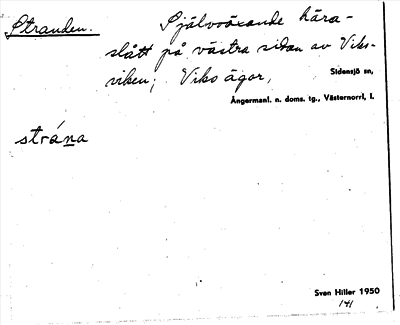 Stranden.
Självväxande hära-
slått på västra sidan av Viks-
viken; Viks ägor,
Sidensjö sn,
Ångermanl. n. doms. tg., Västernorrl, l.
strána
Sven Hiller 1950
141